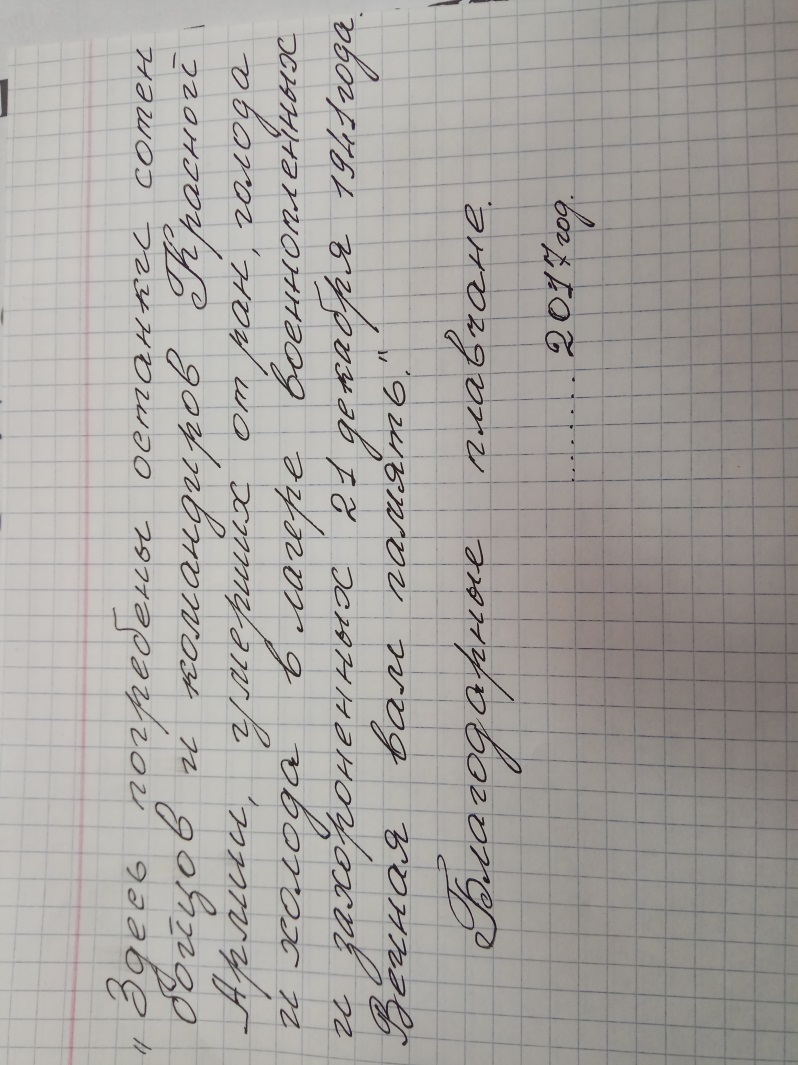 "Здесь погребены останки сотен
бойцов и командиров Красной
Армии, умерших от ран, голода
и холода в лагере военнопленных
и захороненных 21 декабря 1941 года.
Вечная вам память."
Благодарные плавчане.
........ 2017 год.